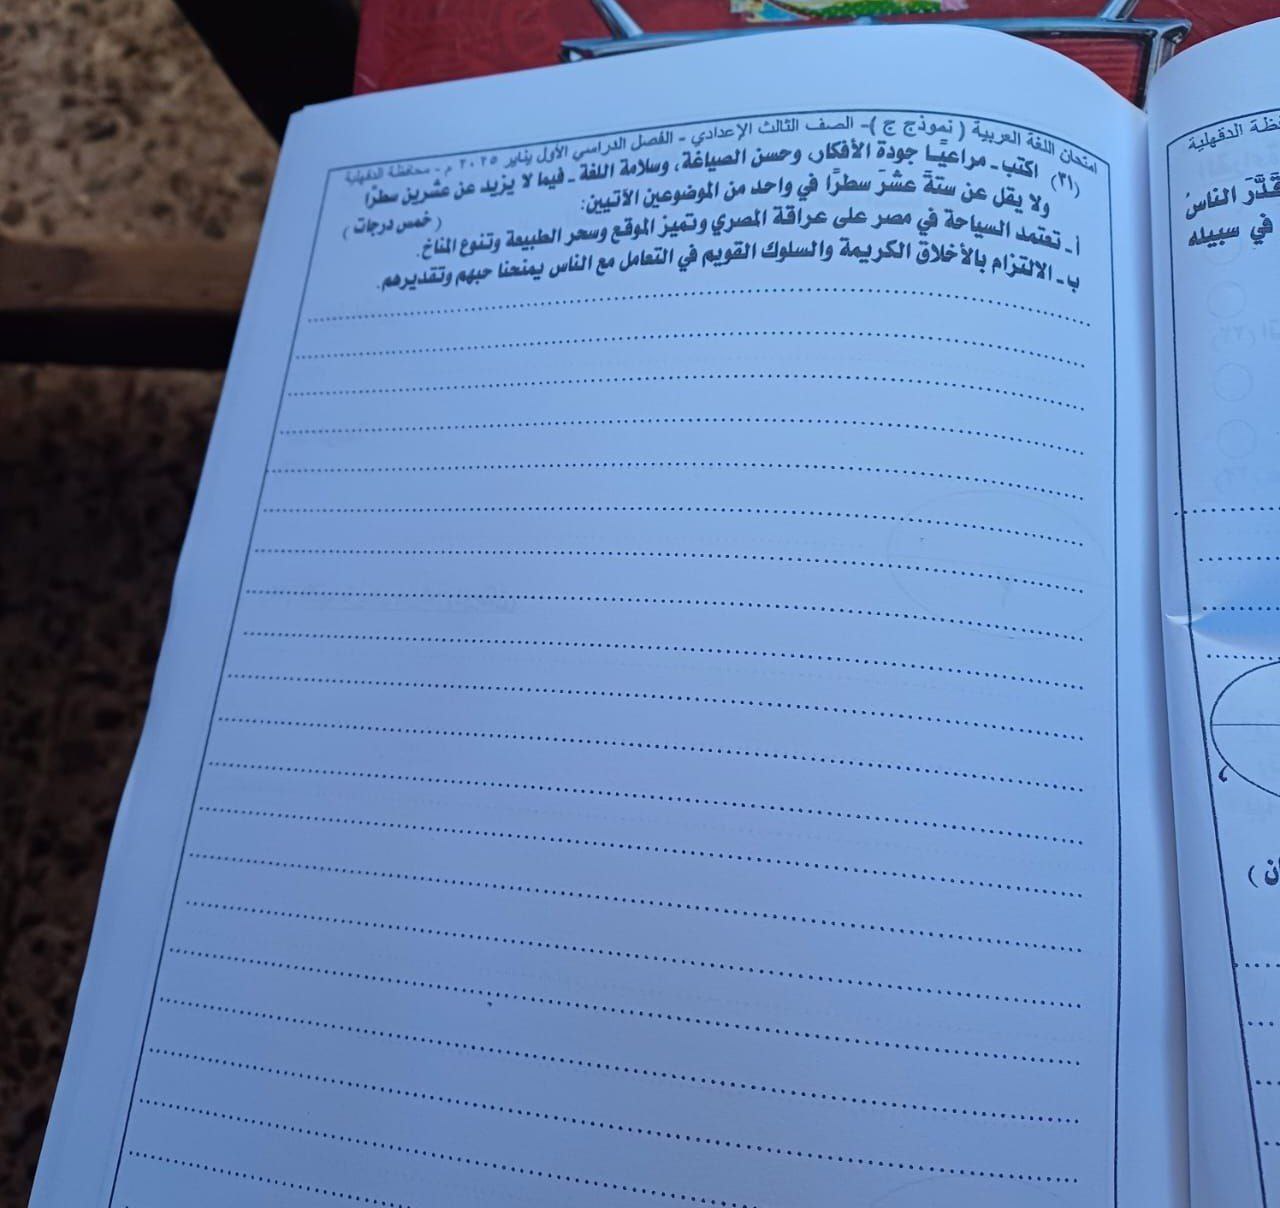 امتحان اللغة العربية ( نموذج ج )- الصف الثالث الإعدادي - الفصل الدراسي الأول يناير ٢٠٢٥ م - محافظة الدقهلية
(٣١) اكتب - مراعيًا جودة الأفكار، وحسن الصياغة، وسلامة اللغة - فيما لا يزيد عن عشرين سطرًا
ولا يقل عن ستةَ عشَرَ سطرًا في واحد من الموضوعين الآتيين: ( خمس درجات )
أ - تعتمد السياحة في مصر على عراقة المصري وتميز الموقع وسحر الطبيعة وتنوع المناخ.
ب - الالتزام بالأخلاق الكريمة والسلوك القويم في التعامل مع الناس يمنحنا حبهم وتقديرهم.
الدقهلية
الناسُ
في سبيله